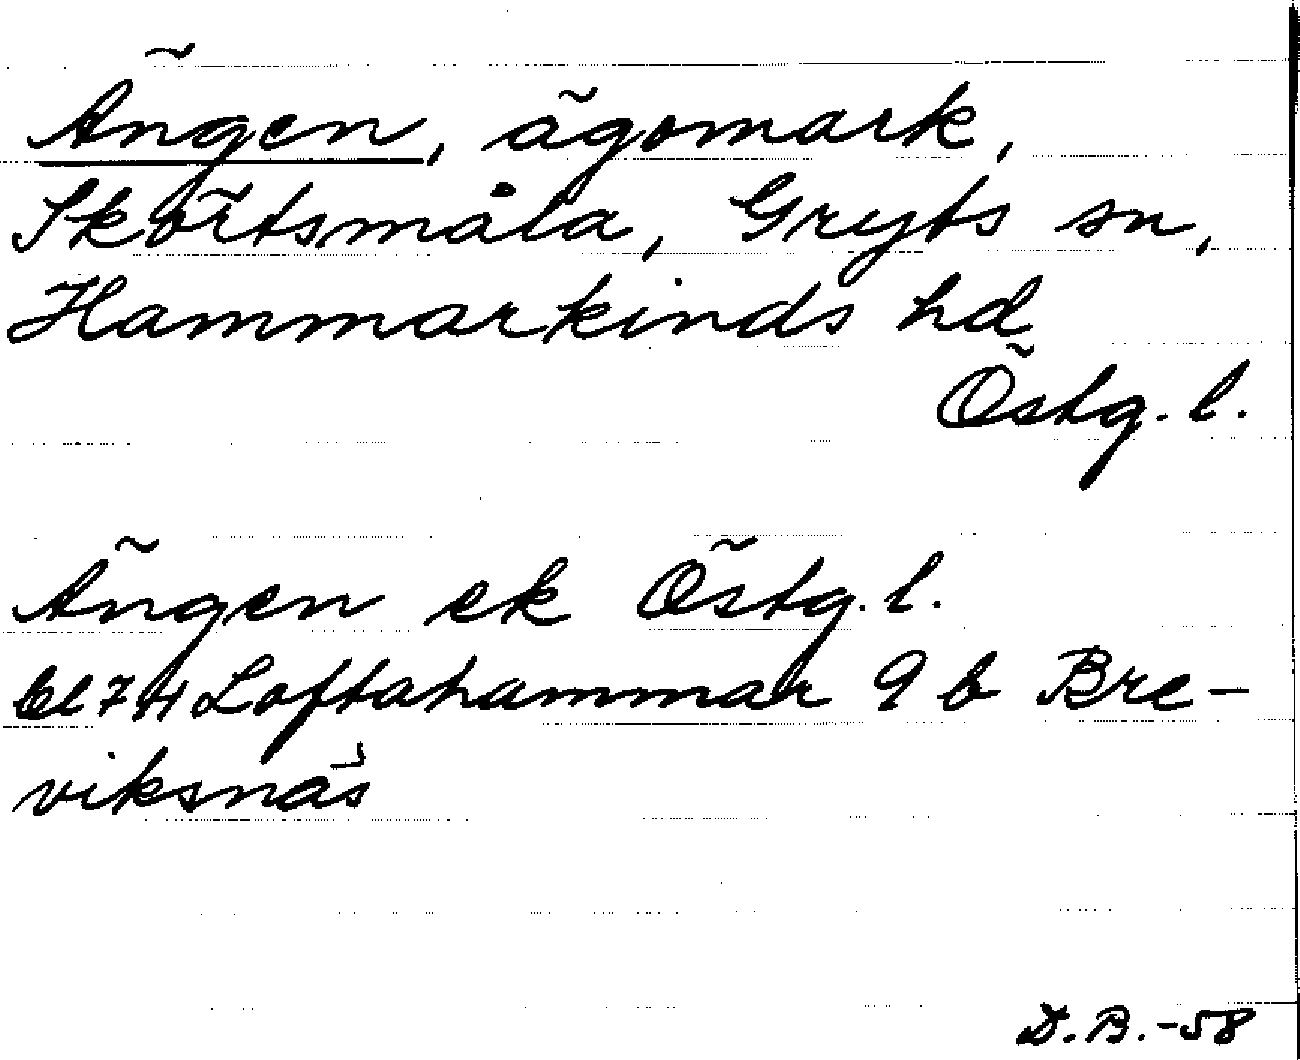 Ängen, ägomark,
Skörtsmåla, Gryts sn,
Hammarkinds hd
Östg. l.
Ängen ek Östg. l.
bl 74 Loftahammar 9 b Bre-
viksnäs
D.B.-58